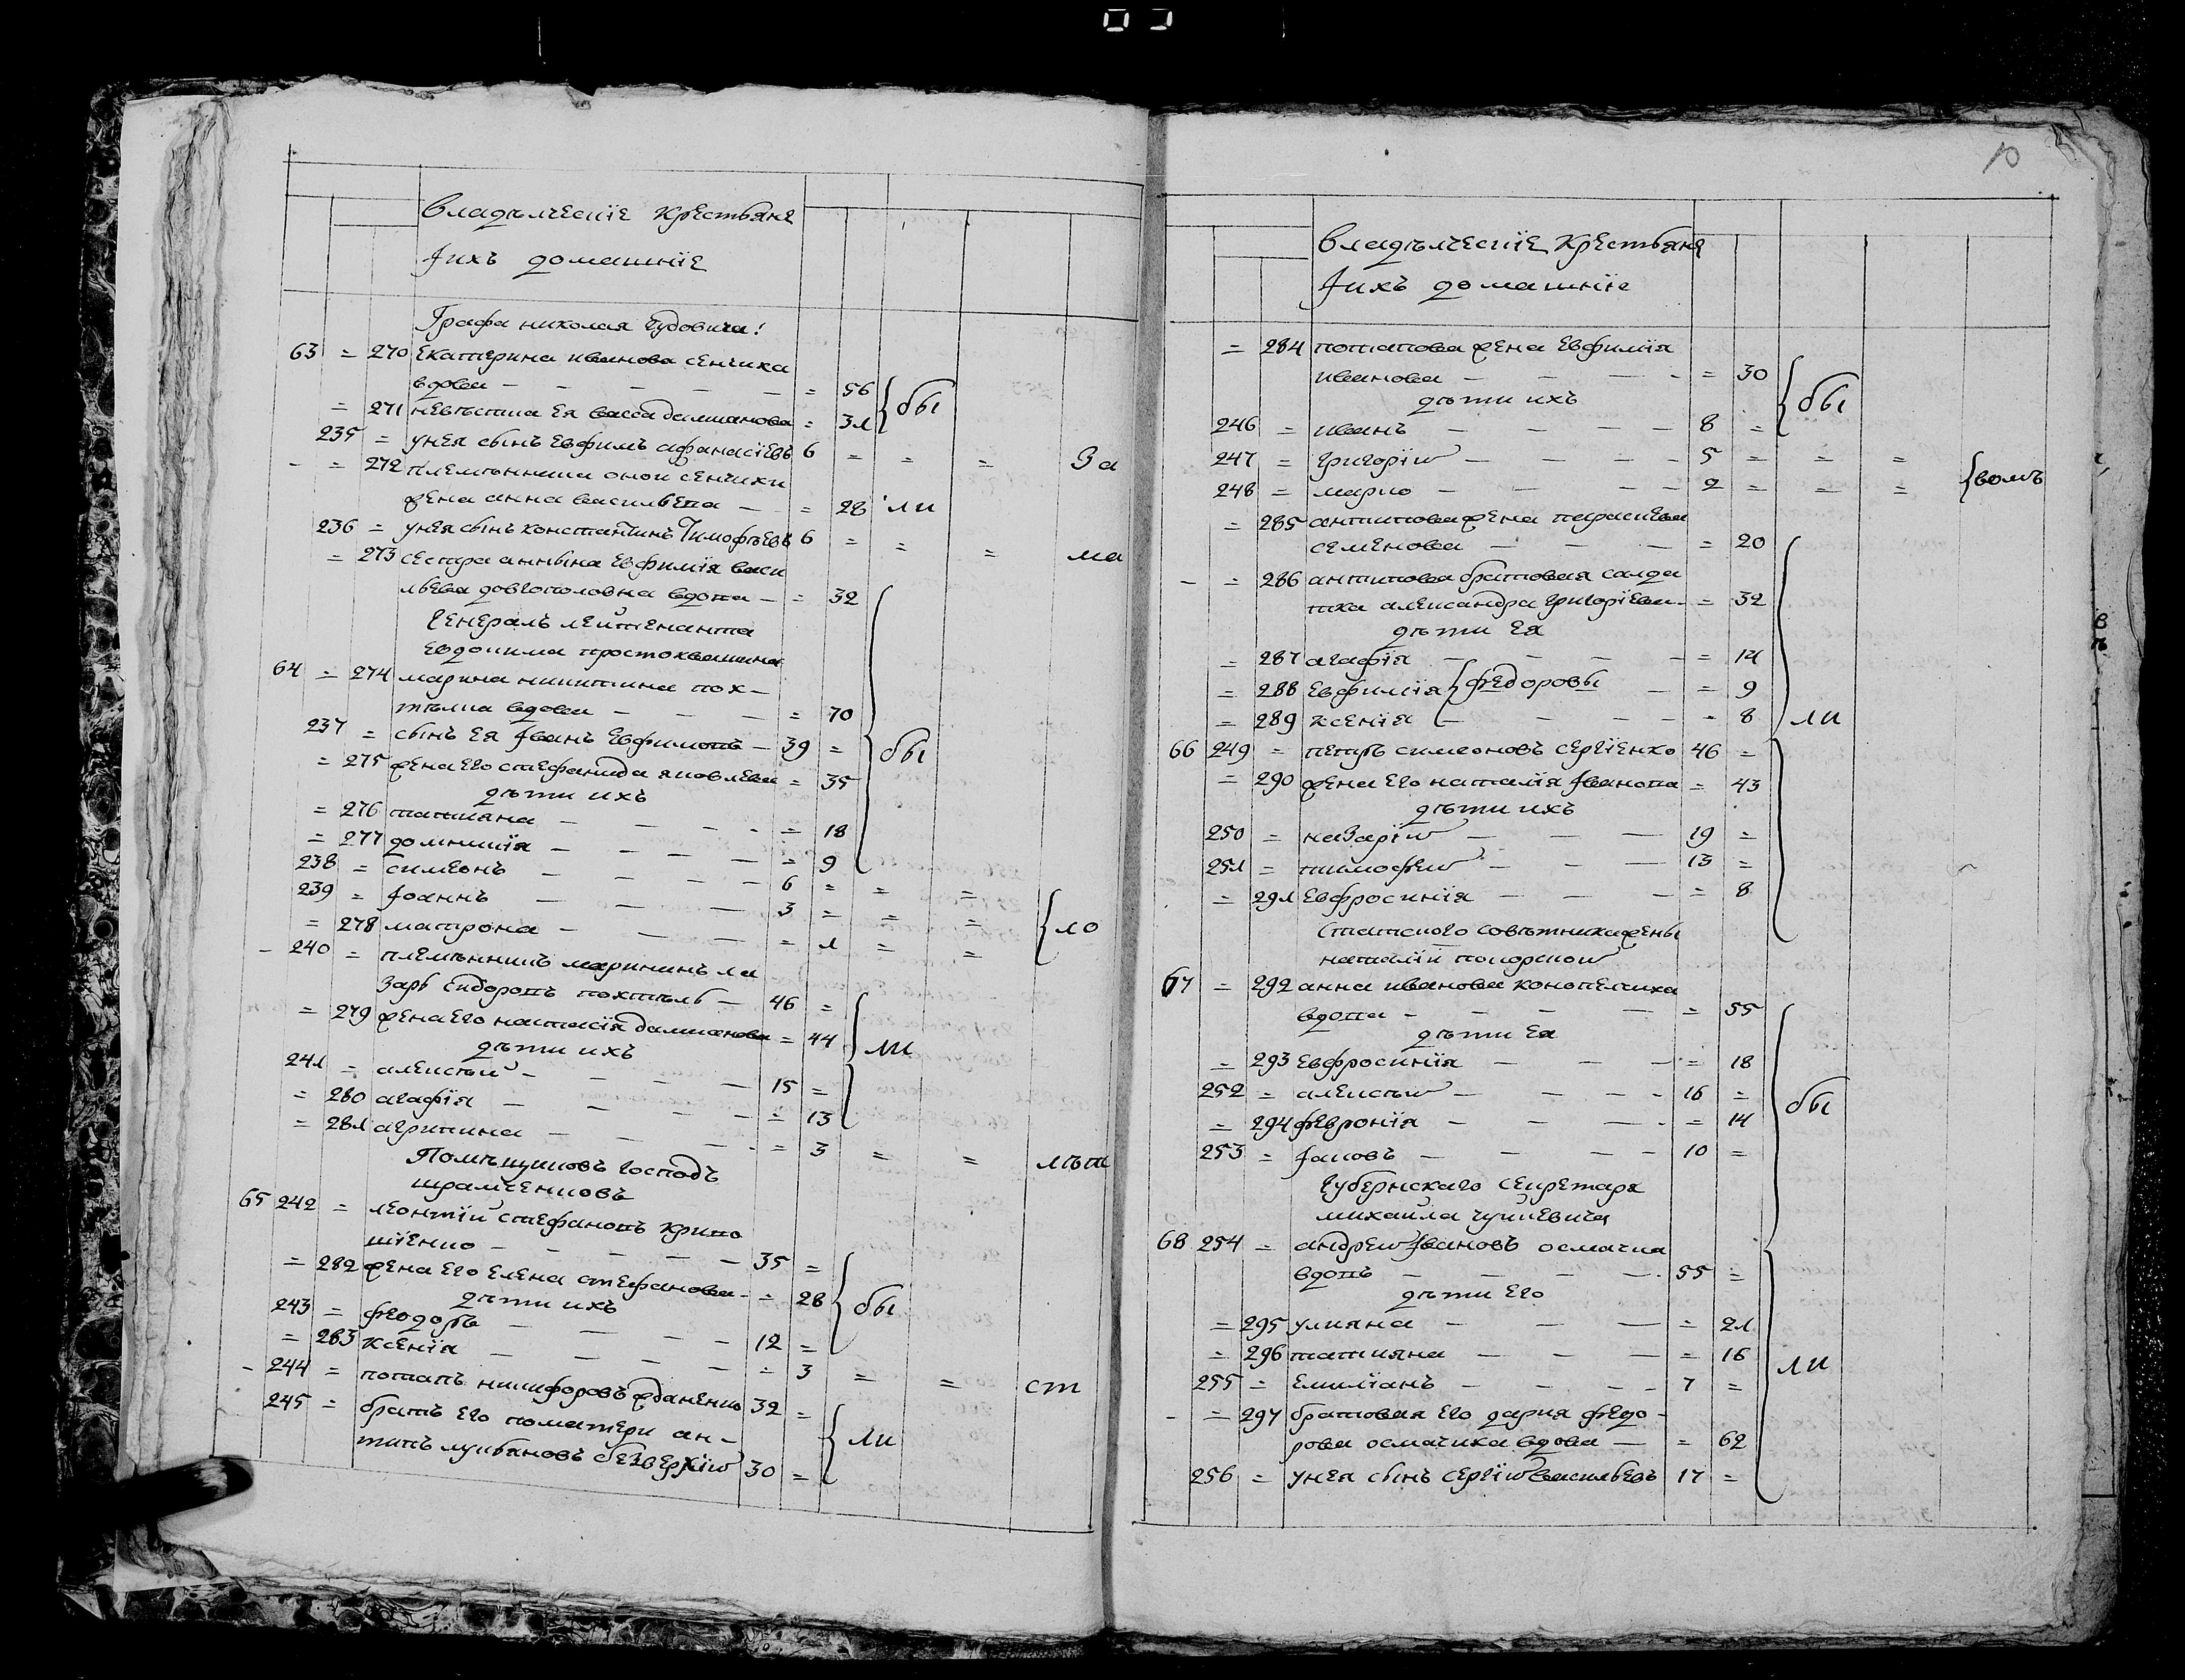 Владѣлческїе крестьяне
Ихъ домашнїе
Графа николая Гудовича:
63 = 270 Екатерина иванова сенчиха
вдова — — — — = 56 бы
= 271 невѣстка Ея васса дамианова = 31
235 = унея сынъ Евфимъ афанасїевъ 6 = = = За
- = 272 племѣнница оной сенчихи
жена анна васильева — = 28 ли
236 = унея сынъ константинъ Тимофѣевъ 6 = = = ма
= 273 сестра аннына Евфимїя васи
льева довгополовна вдова — = 32
Генералъ лейтенанта
Евдокима простоквашина
64 = 274 марина никитина пох-
тѣлиа вдова — — — = 70
237 = сынъ Ея Іванъ Евфимовъ — 39 = бы
= 275 жена Его стефанида яковлева = 35
дѣти ихъ
= 276 татияна — — — = 18
= 277 домникїя — — — = 9
238 = симеонъ — — — 6 = = =
239 = Іоаннъ — — — 3 = = = ло
= 278 матрона — — — = 1 = =
- 240 = племѣнникъ марининъ ла
зарь Сидоровъ похтѣль — 46 =
= 279 жена Его настасїя дамианова = 44 ли
дѣти ихъ
241 = алексѣй — — — 15 =
= 280 агафїя — — — = 13
= 281 агрипина — — — = 3 = = лѣт
Помѣщиковъ Господъ
шрамченковъ
65 242 = леонтїй стефановъ криво
шїенко — — — 35 =
= 282 жена Его Елена стефанова — = 28 бы
дѣти ихъ
243 = феодоръ — — — 12 =
= 283 ксенїя — — — = 3 = = ст
- 244 = потапъ никифоровъ жданенко 32 =
245 = братъ Его поматери ан-
типъ лукьяновъ безверхїй 30 = ли
10
Владѣлческїе крестьяня
Ихъ домашнїе
= 284 потапова жена Евфимїя
иванова — — — = 30
дѣти ихъ бы
246 = иванъ — — — 8 =
247 = григорїй — — — 5 = = =
248 = марко — — — 2 = = = вомъ
= 285 антипова жена параскева
семенова — — — = 20
- = 286 антипова братовая салда
тка александра григорїева — = 32
дѣти Ея
= 287 агафїя — — — = 14
= 288 Евфимїя федоровы — = 9
= 289 ксенїя — — — = 8 ли
66 249 = петръ симеоновъ сергїенко 46 =
= 290 жена Его наталїя Іванова = 43
дѣти ихъ
250 = назарїй — — — 19 =
251 = тимофей — — — 13 =
= 291 Евфросинїя — — — = 8
Статского совѣтника жены
наталїи покорской
67 = 292 анна иванова конопелчиха
вдова — — — = 55
дѣти Ея
= 293 Евфросинїя — — — = 18
252 = алексѣй — — — 16 = бы
= 294 февронїя — — — = 14
253 = Іаковъ — — — 10 =
Губернскаго секретаря
михаила
68 254 = андрей Івановъ осмачка
вдовъ — — — 55 =
дѣти Его
= 295 улияна — — — = 21
= 296 татияна — — — = 16 ли
255 = Емилїанъ — — — 7 =
- = 297 братовая Его дария федо-
рова осмачиха вдова — = 62
256 = унея сынъ сергїй васильевъ 17 =